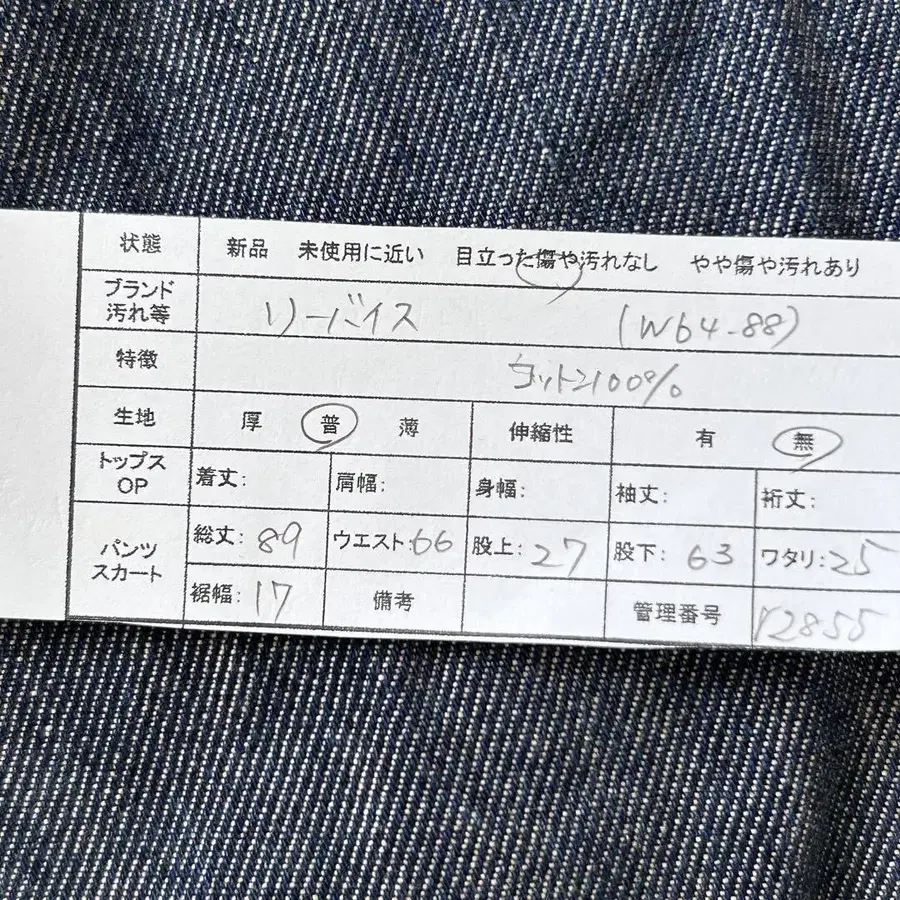 状態 新品 未使用に近い 目立った傷や汚れなし やや傷や汚れあり
ブランド
汚れ等 リーバイス (W64-88)
特徴 コットン100%
生地 厚 普 薄 伸縮性 有 無
トップス
OP 着丈: 肩幅: 身幅: 袖丈: 裄丈:
パンツ
スカート 総丈: 89 ウエスト: 66 股上: 27 股下: 63 ワタリ: 25
裾幅: 17 備考 管理番号 Y2855